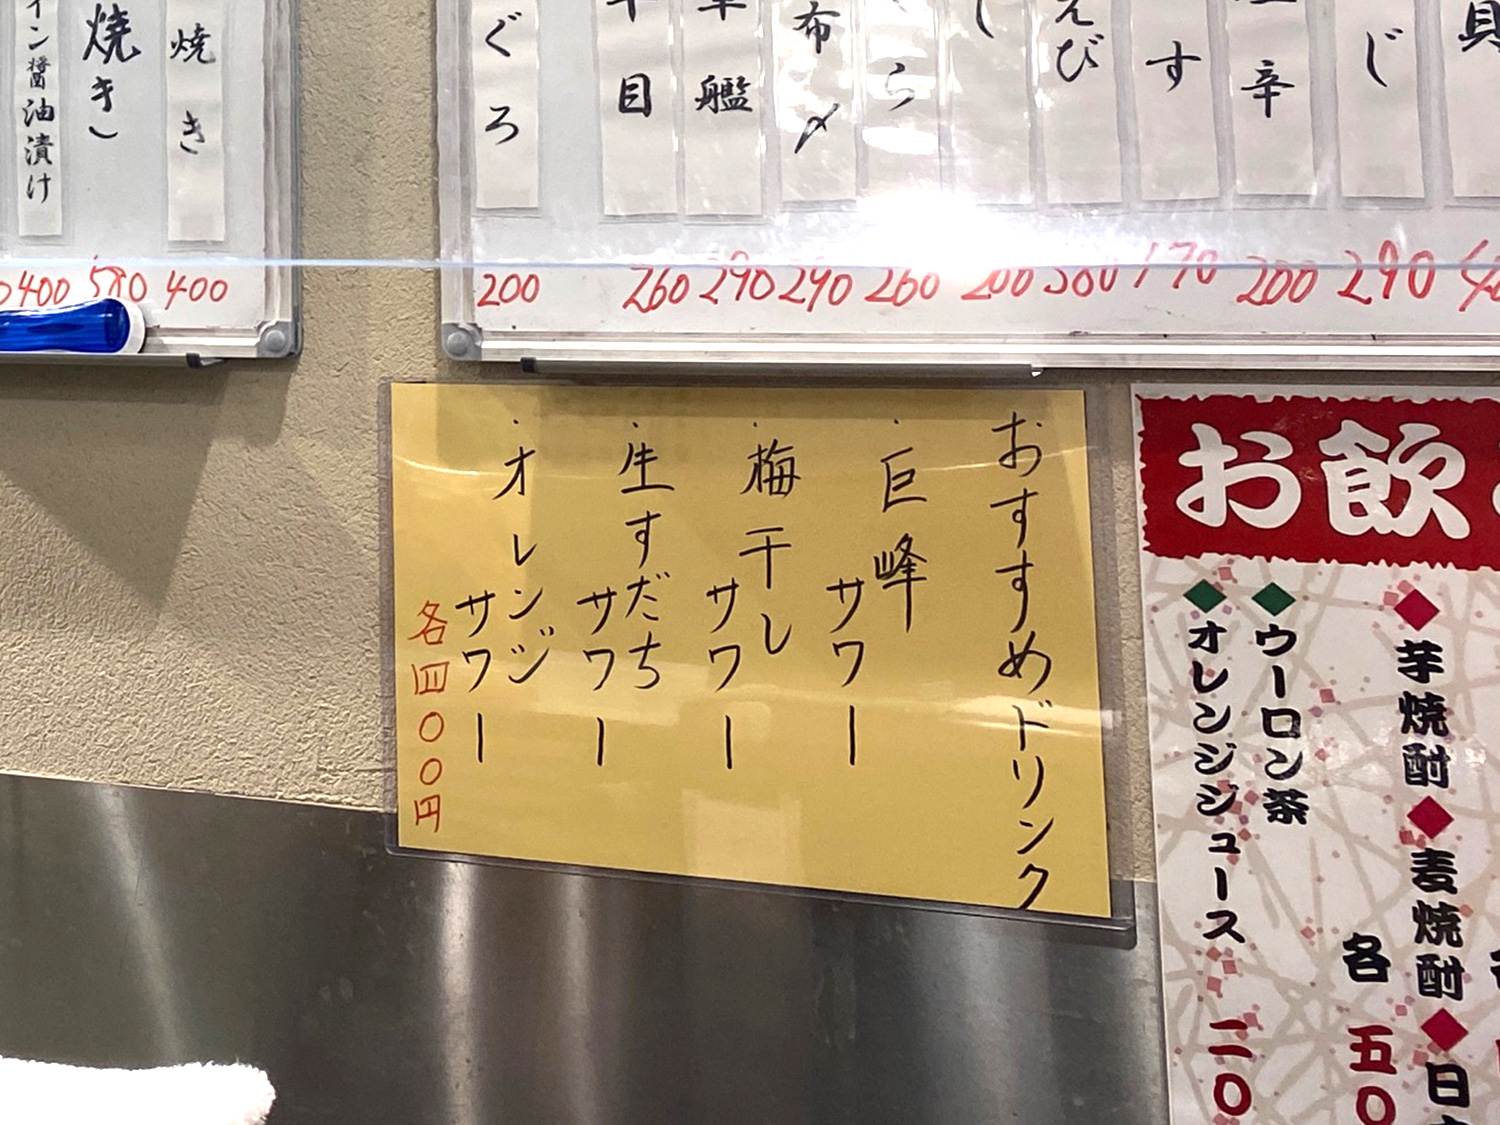 イン醤油漬け
焼き
焼き
400
580
400
ぐろ
目
艦
布〆
ら
し
えび
す
辛
じ
貝
200
260
290
290
260
200
380
170
200
290
おすすめドリンク
・巨峰サワー
・梅干しサワー
・生すだちサワー
・オレンジサワー
各四〇〇円
お飲
◆芋焼酎◆麦焼酎◆日
各 五〇
◆ウーロン茶
◆オレンジジュース 二〇